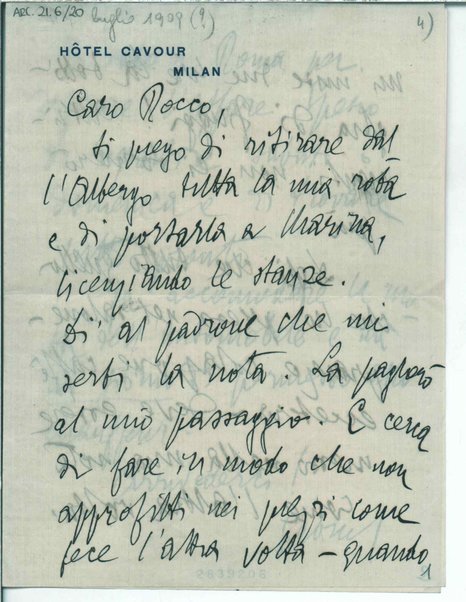 ARC. 21.6/20 luglio 1909 (?)
4)
HÔTEL CAVOUR
MILAN
Caro Rocco,
ti prego di ritirare dal
l'Albergo tutta la mia roba
e di portarla a Marina,
licenziando le stanze.
Di' al padrone che mi
serbi la nota. La pagherò
al mio passaggio. E cerca
di fare in modo che non
approfitti nei prezzi come
fece l'altra volta – quando
1